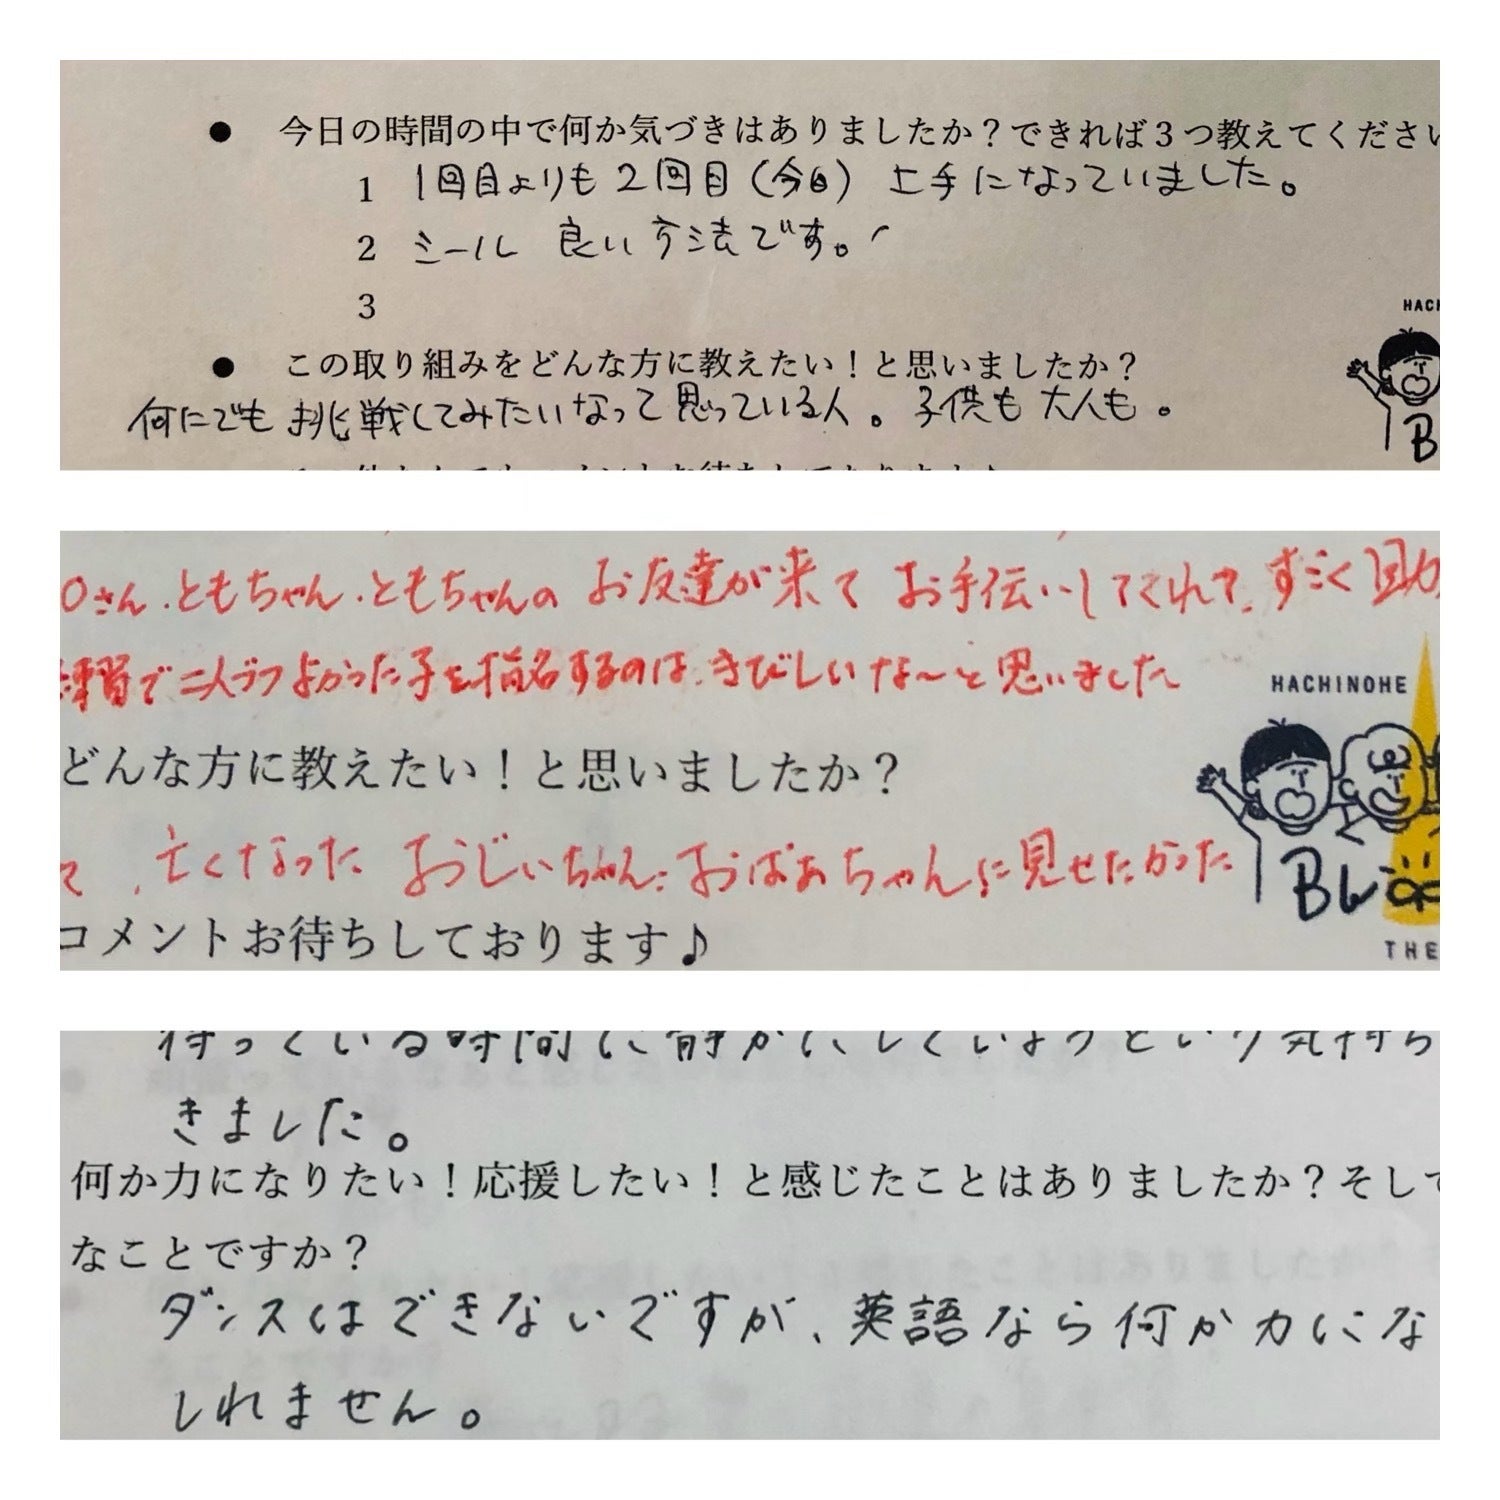 ● 今日の時間の中で何か気づきはありましたか？できれば３つ教えてください
1 1回目よりも2回目（今日） 上手になっていました。
2 シール 良い方法です。
3
● この取り組みをどんな方に教えたい！と思いましたか？
何にでも 挑戦してみたいなって思っている人。子供も 大人も。
HACH
B
さん.ともちゃん.ともちゃんの お友達が来て お手伝いしてくれて、すごく助
練習で 二人づつよかった子を指名するのは、きびしいな〜と思いました
HACHINOHE
どんな方に教えたい！と思いましたか？
て、亡くなった おじいちゃん、おばあちゃんに見せたかった
コメントお待ちしております♪
THE
待っている時間に静かにしていようという気持ち
きました。
何か力になりたい！応援したい！と感じたことはありましたか？そして
なことですか？
ダンスはできないですが、英語なら何か力にな
しれません。